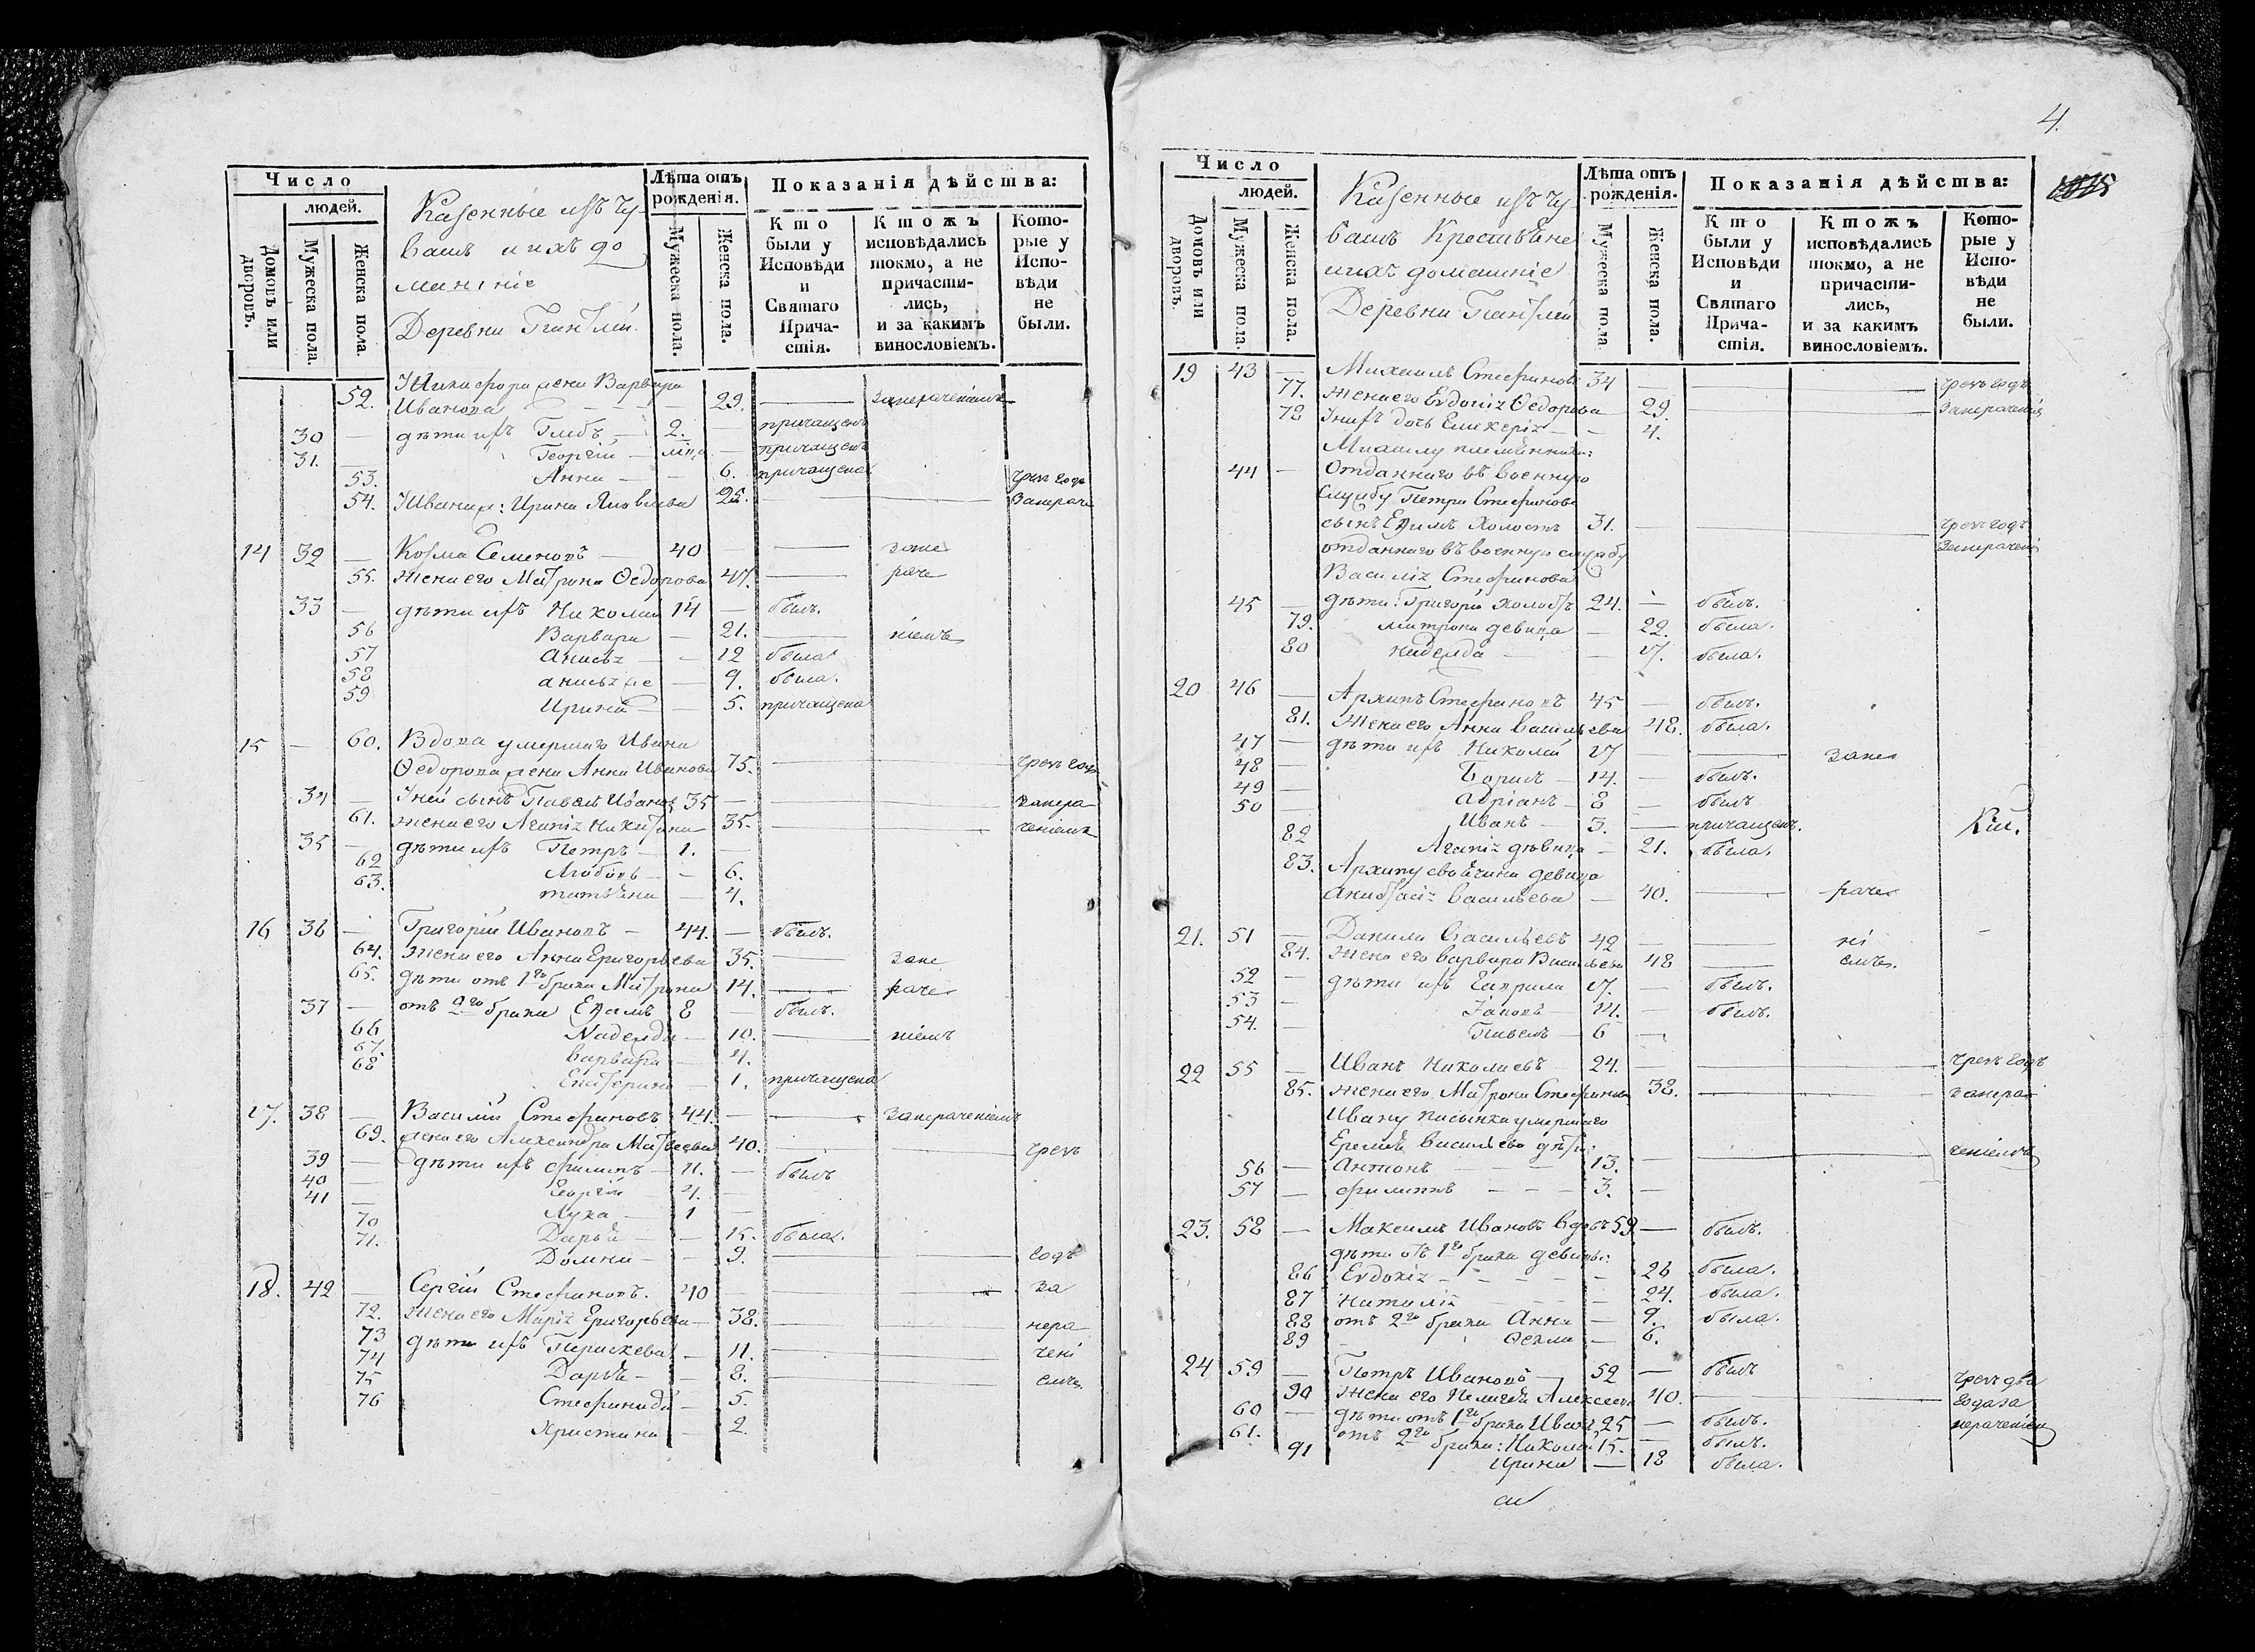 Число
людей.
Домовъ или дворовъ.
Мужеска пола.
Женска пола.
Казенные изъ Чу-
вашъ и ихъ до
машніе
Деревни
Лѣта отъ рожденія.
Мужеска пола.
Женска пола.
Показанія дѣйства:
Кто были у Исповѣди и Святаго Прича-стія.
Ктожъ исповѣдались токмо, а не причасти-лись, и за какимъ винословіемъ.
Кото-рые у Испо-вѣди не были.
52. Никифора жена Варвара
Иванова — 29. — занераченіемъ
30 — дѣти ихъ Глебъ — 2. — причащенъ
31. — Георгій — — причащенъ
53. Анна — 6. причащена
54. Ивана ж: Ирина Яковлева 25. — чрезъ годъ занерач
14 32 — Козма Семеновъ — 40 — зане
55. жена его Матрона Ѳедорова 47. — раче
33 — дѣти ихъ Николай 14 — былъ.
56 Варвара — 21. — ніемъ
57 Анисья — 12 была
58 Анисья же — 9. была.
59 Ирина — 5. причащена
15 — 60. Вдова умершаго Ивана
Ѳедорова жена Анна Иванова 75. — чрезъ годъ
34 — У ней сынъ Павелъ Иванов 35 — занера
61. жена его Агапія Никитина 35. — ченіемъ
35 — дѣти ихъ Петръ — 1. —
62 Любовь — 6.
63. Татьяна — 4.
16 36 — Григорій Ивановъ — 44. — былъ.
64. Жена его Анна Григорьева 35. — зане
65. дѣти отъ 1го брака Матрона 14. — раче
37 — отъ 2го брака 8 — былъ.
66 Надежда — 10. — ніемъ
67 Варвара — 4.
68 Екатерина — 1. причащена
17. 38 — Василій Стефановъ 44. — занераченіемъ
69. жена его Александра Матвеева 40. — чрезъ
39 — дѣти ихъ Филипъ — 11. — былъ
40 — Георгій 4. —
41 — Лука — 1 —
70 Дарья — 15. была.
71. Домна — 9. — годъ
18. 42 — Сергій Стефановъ. 40 — за
72. Жена его Марія Григорьева — 38. — нера
73 дѣти ихъ Параскева — 11. — чені
74 Дарья — 8. — емъ
75 Стефанида — 5.
76 Христина — 2.
4.
Число
людей.
Домовъ или дворовъ.
Мужеска пола.
Женска пола.
Казенные изъ Чу
вашъ Крестьяне
и ихъ домашніе
Деревни
Лѣта отъ рожденія.
Мужеска пола
Женска пола.
Показанія дѣйства:
Кто были у Исповѣди и Святаго Прича-стія.
Ктожъ исповѣдались токмо, а не причасти-лись, и за какимъ винословіемъ.
Кото-рые у Испо-вѣди не были.
19 43 — Михаилъ Стефановъ 34 — чрезъ годъ
77. Жена его Евдокія Ѳедорова — 29. — занераченія
78 У нихъ дочь — 4.
Михаилу племянники:
44 — Отданнаго въ военную
службу Петра Стефанова
сынъ холостъ 31. — чрезъ годъ
отданнаго въ военную службу занерачені
Василія Стефанова
45 — дѣти: Григорій холостъ 24. — былъ.
79. Матрона девица — 22. была.
80 Надежда — 17. была.
20 46 — Архипъ Стефановъ 45 — былъ.
81. Жена его Анна Васильева 48. была.
47 — дѣти ихъ Николай 17 — зане
48 — Борисъ — 14. — былъ.
49 — Адріанъ — 8 — былъ
50 Иванъ — 3. — причащенъ.
82 Агапія дѣвица — 21. была.
83. Архипу своячина девица
Анастасія Васильева — 40. — раче
21. 51 — Данила Васильевъ 42 — ні
84. Жена его Варвара Васильева 48 — емъ.
52 — дѣти ихъ Гаврила 17. — былъ.
53 — Іаковъ — 14. — былъ.
54. — Павелъ — 6 —
22 55 — Иванъ Николаевъ — 24. — чрезъ годъ
85. жена его Матрона Стефанова 38. — занера
Ивану пасынка умершаго
Еремея Васильева дѣти: ченіемъ
56 — Антонъ — 13. —
57 — Филиппъ — 3. —
23. 58 — Максимъ Ивановъ вдовъ 59 — былъ.
дѣти отъ 1го брака девицы:
86 Евдокія — 26 была.
87 Наталія — 24. была.
88 отъ 2го брака Анна — 9. была.
89 Ѳекла — 6.
24 59 — Петръ Ивановъ — 52 — былъ
90 Жена его Пелагея Алексеев 40. — чрезъ два года за нераченіем
60 — дѣти отъ 1го брака Иванъ 25 — былъ.
61. отъ 2го брака: Николай 15. — былъ.
91 Ирина — 18 была.